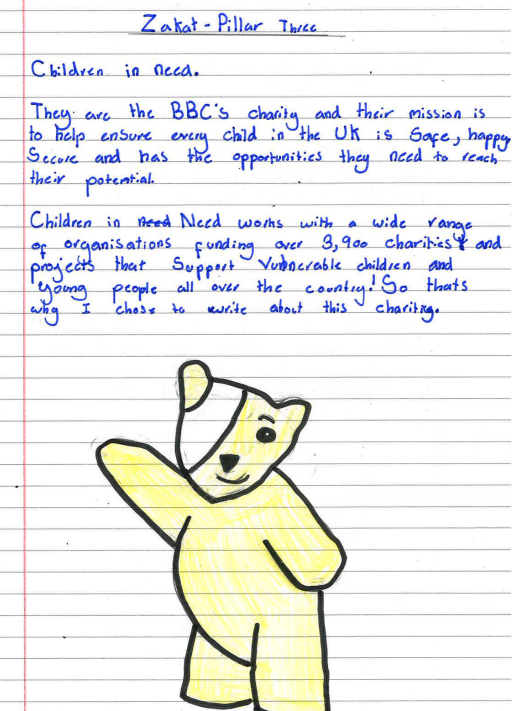 Zakat - Pillar Three
Children in need.
They are the BBC's charity and their mission is
to help ensure every child in the UK is Safe, happy
Secure and has the opportunities they need to reach
their potential.
Children in need Need works with a wide range
of organisations funding over 3,900 charities and
projects that Support Vulnerable children and
young people all over the country! So thats
why I chose to write about this charity.